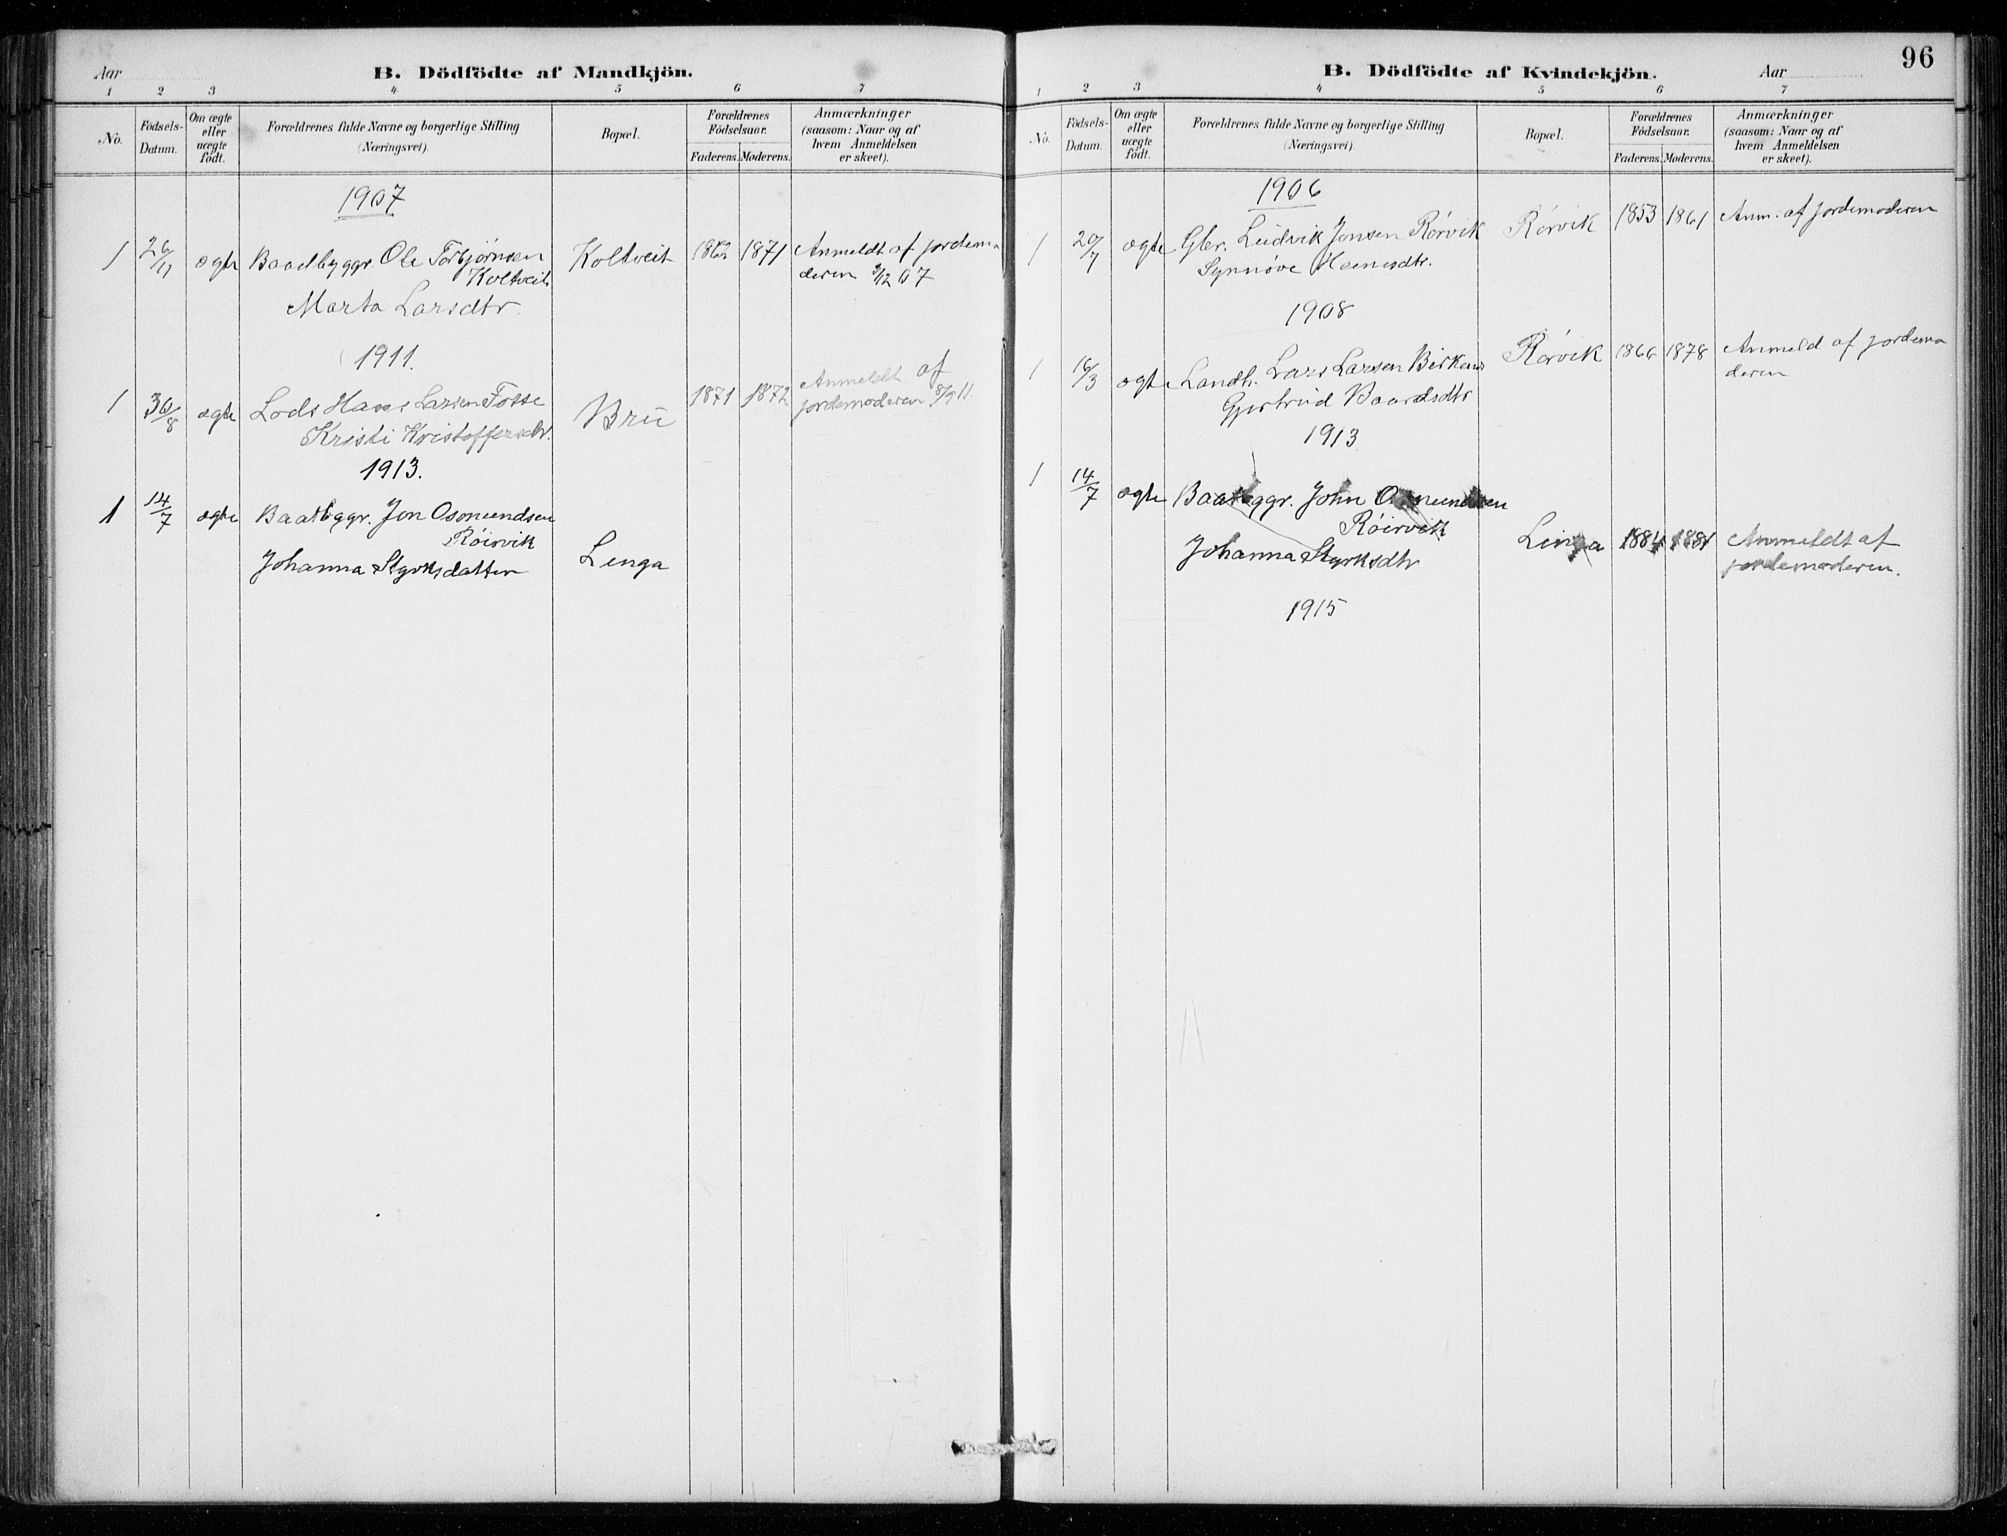 Aar
B. Dödfödte af Mandkjön.
1 2 3 4 5 6 7
No.
Födsels-
Datum.
Om ægte
eller
uægte
födt.
Forældrenes fulde Navne og borgerlige Stilling
(Næringsvei).
Bopæl.
Forældrenes
Födselsaar.
Faderens. Moderens.
Anmærkninger
(saasom: Naar og af
hvem Anmeldelsen
er skeet).
1907
1 26/11 ægte Baadbyggr. Ole Torbjørnsen Koltveit 1862 1871 Anmeldt af jordemo
Koltveit deren 3/12 07
Marta Larsdtr.
1911.
1 30/8 ægte Lods Hans Larsen Fosse Bru 1871 1872 Anmeldt af
Kristi Kristoffersdtr. jordemoderen 8/9 11.
1913.
1 14/7 ægte Baatbggr. Jon Osmundsen
Röirvik
Johanna Styrksdatter Linga
96
B. Dödfödte af Kvindekjön.
Aar
1 2 3 4 5 6 7
No.
Födsels-
Datum.
Om ægte
eller
uægte
födt.
Forældrenes fulde Navne og borgerlige Stilling
(Næringsvei).
Bopæl.
Forældrenes
Födselsaar.
Faderens. Moderens.
Anmærkninger
(saasom: Naar og af
hvem Anmeldelsen
er skeet).
1906
1 20/7 ægte Gbr. Ludvik Jonsen Rørvik Rørvik 1853 1861 Anm. af jordemoderen
Synnøve
1908
1 16/3 ægte Landh. Lars Larsen Rørvik 1866 1878 Anmeld af jordemo
Gjertrud Baardsdtr deren
1913
1 14/7 ægte Baatbggr. John Osmundsen
Röirvik
Johanna Styrksdtr Linga 1884 1881 Anmeldt af
jordemoderen.
1915